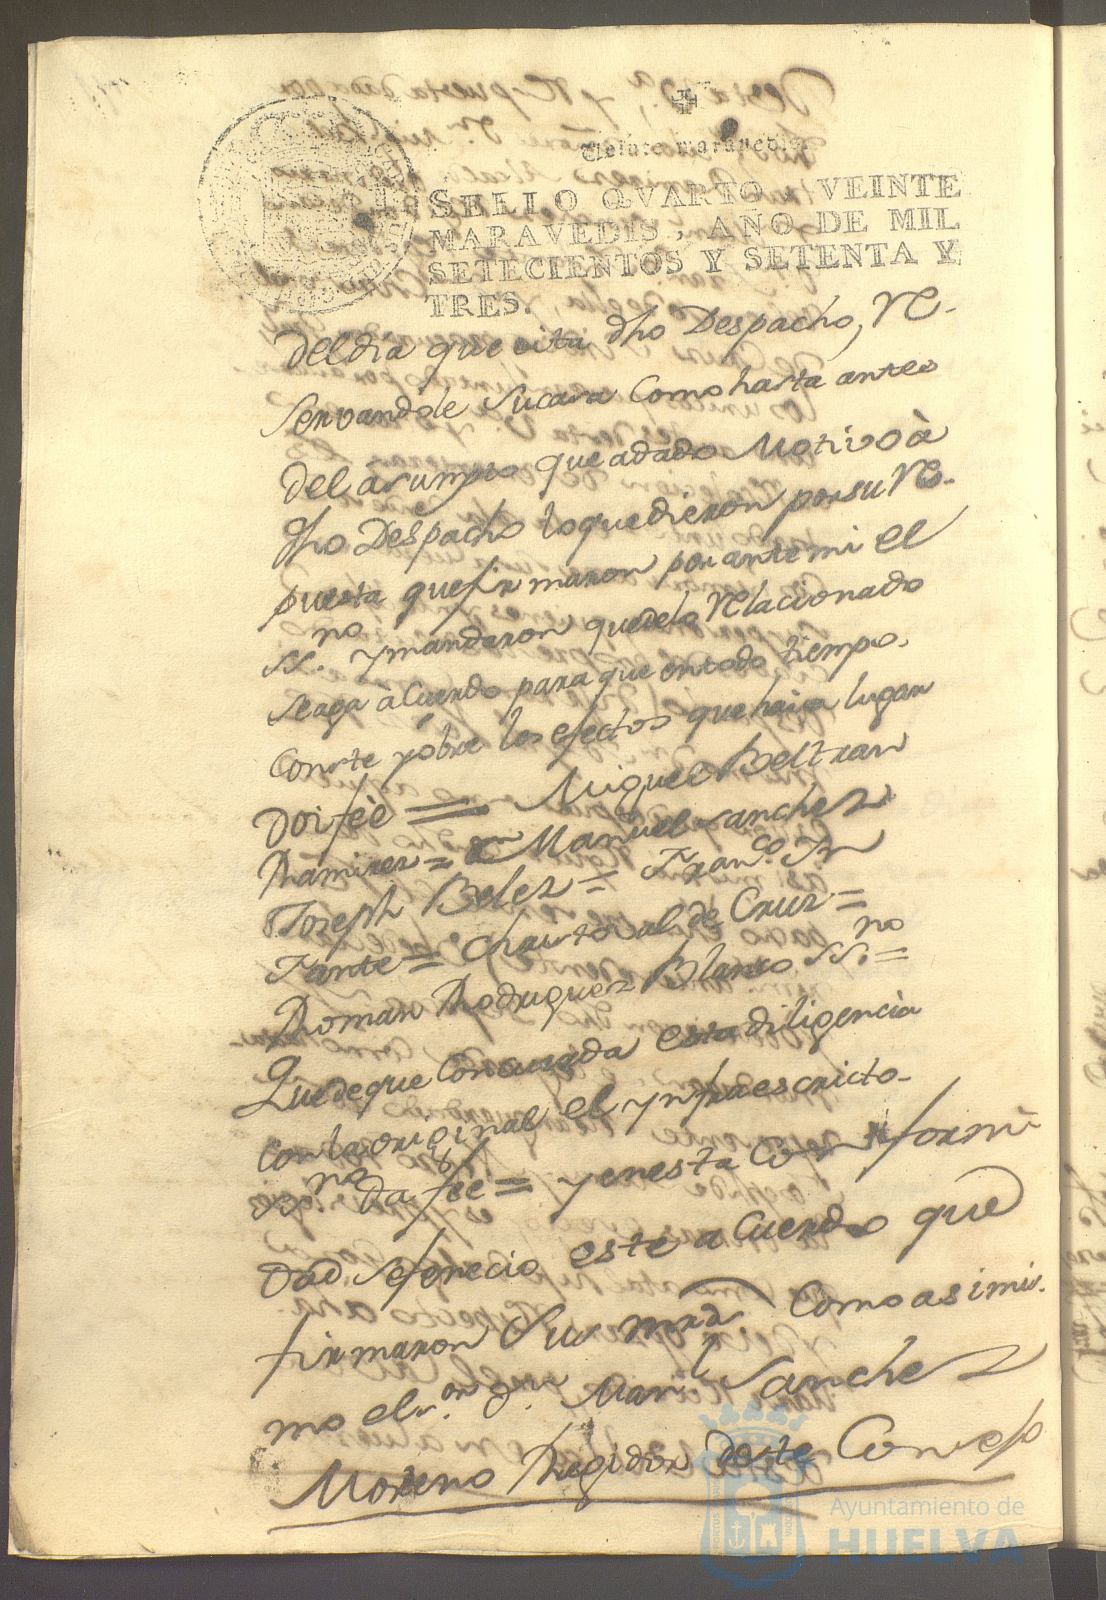 Veinte maravedis.
SELLO QVARTO, VEINTE
MARAVEDIS, AÑO DE MIL
SETECIENTOS Y SETENTA Y
TRES.
del dia que cita dho Despacho, Re-
servandole Sucara Como hasta antes
del asumpto que adado Motivo à
dho Despacho lo que dieron por su Res-
puesta que firmaron por ante mi el
SS.no y mandaron que delo Relacionado
se aga àCuerdo para que entodo tiempo.
Conste y obre los efectos que haiga lugar
Doi fèe = Miguel Beltran
Ramirez = Dn Manuel Sanchez
Joseph Belez = Franco In
fante = Christoval de Cruz =
Roman Rodriguez Blanco SS.no =
Que de que Concuerda esta diligencia
Con la original el ynfraescripto-
SS.no da fèe = y en esta Conformi
dad se fenecio este aCuerdo que
firmaron Sus mrds. Como asimis-
mo el s.or dn Manl Sanchez
Moreno Regidor deste Consejo
Ayuntamiento de
HUELVA